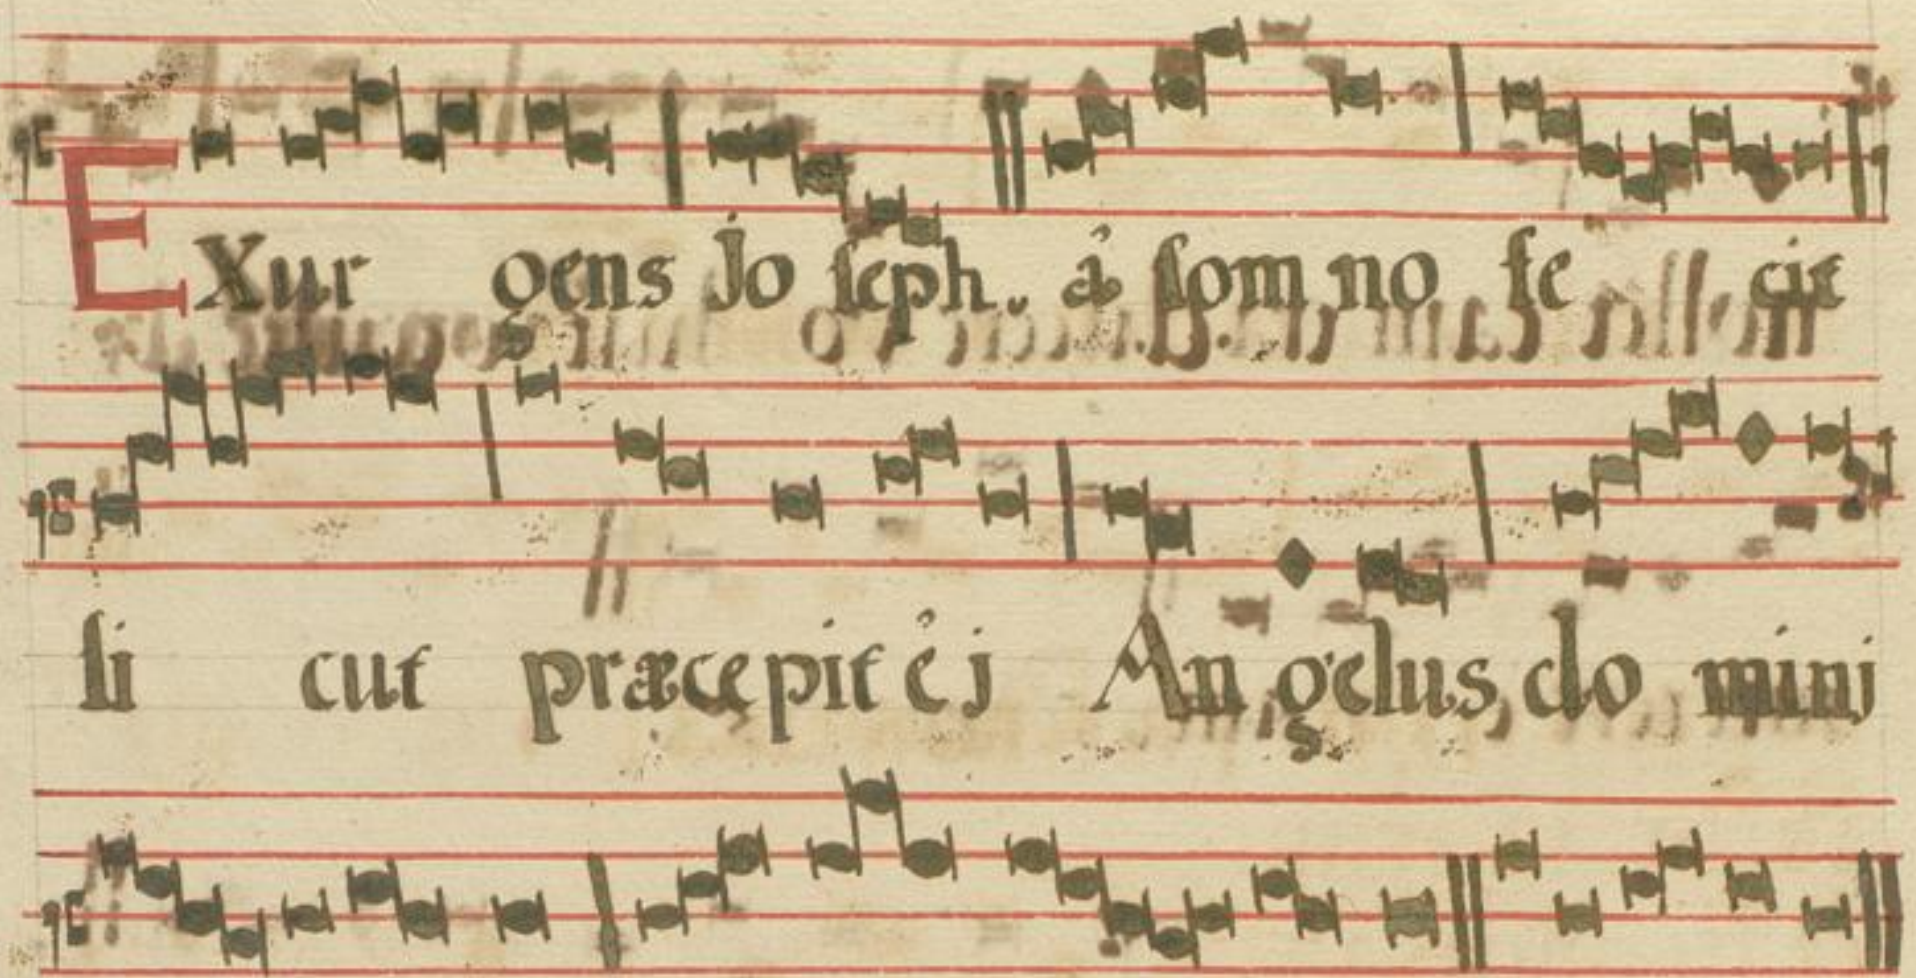 EXur gens Jo seph. á som no fe cit
si cut præcepit é j An gelus do minj